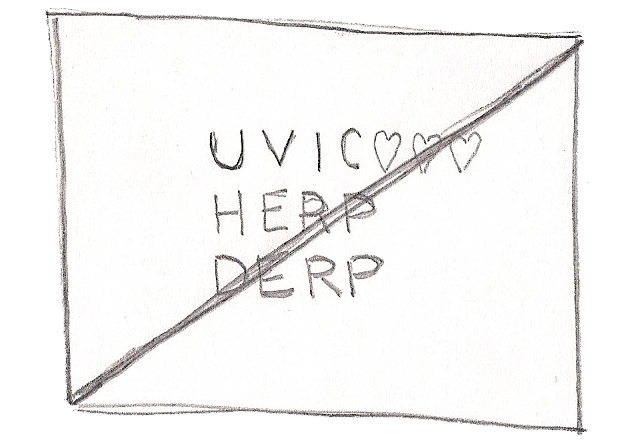 UVIC♡♡♡
HERP
DERP